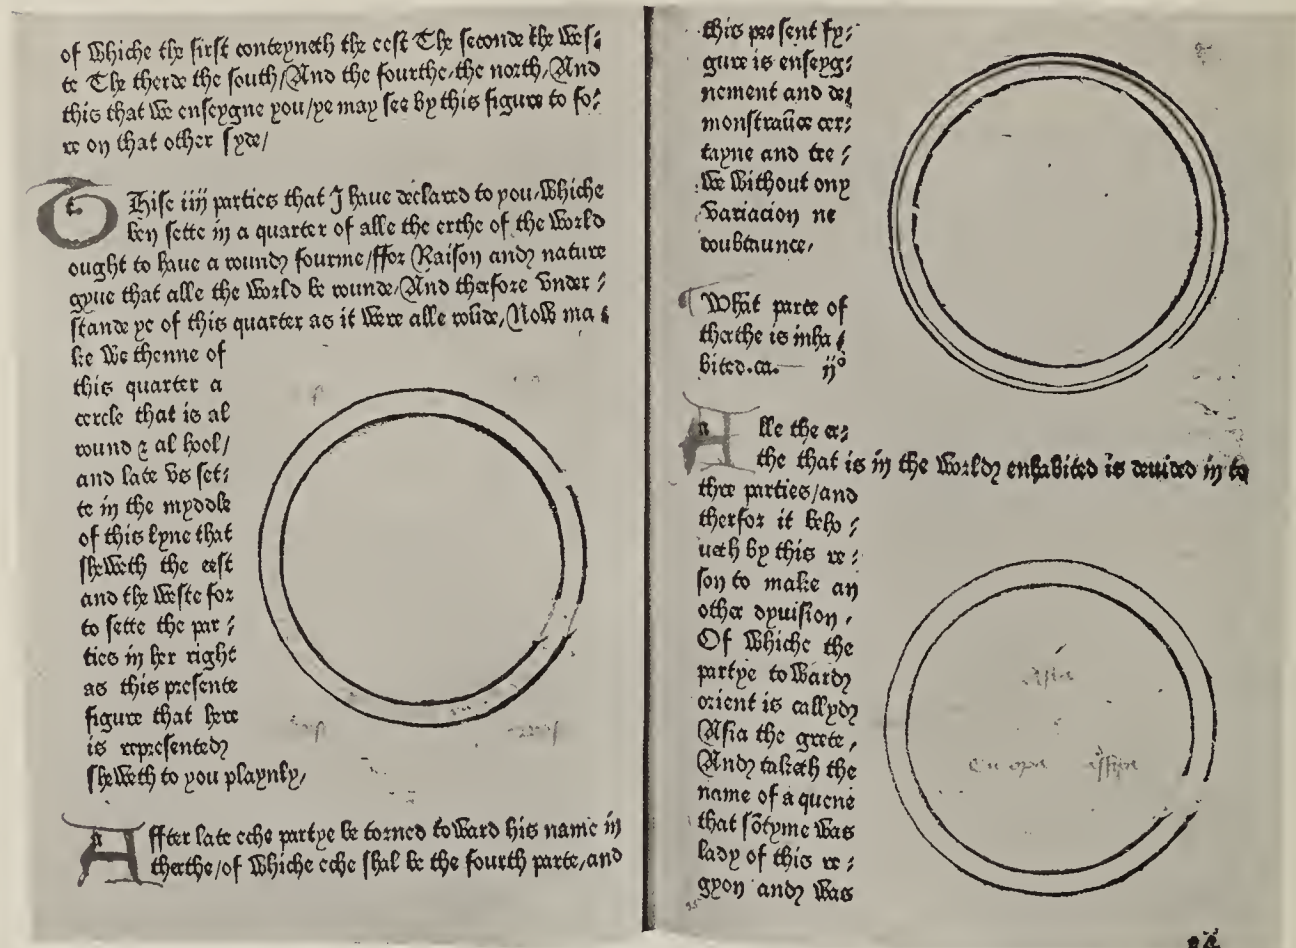 of whiche the first conteyneth the eest The seconde the wes⸗
te The therde the south/And the fourthe/the north/And
this that we enseygne you/ye may see by this figure to fo⸗
re on that other syde/
THise iiij parties that I haue declared to you/whiche
ben sette in a quarter of alle the erthe of the world
ought to haue a round fourme/ffor Raison and nature
gyue that alle the world be rounde/And therfore vnder⸗
stande ye of this quarter as it were alle roūde/Now ma⸗
ke we thenne of
this quarter a
cercle that is al
round ⁊ al hool/
and late vs set⸗
te in the myddle
of this lyne that
sheweth the eest
and the weste for
to sette the par⸗
ties in her right
as this presente
figure that here
is represented
sheweth to you playnly/
Affter late eche partye be torned toward his name in
therthe/of whiche eche shal be the fourth parte/and
this present fy⸗
gure is enseyg⸗
nement and de⸗
monstraūce cer⸗
tayne and tre⸗
we without ony
variacion ne
doubtaunce/
What parte of
therthe is inha⸗
bited.ca. ijº
Alle the er⸗
the that is in the world enhabited is deuided in to
thre parties/and
therfor it beho⸗
ueth by this re⸗
son to make an
other dyuision/
Of whiche the
partye toward
orient is callyd
Asia the grete/
And taketh the
name of a quene
that sōtyme was
lady of this re⸗
gyon and was
Asia
Europe
affryke